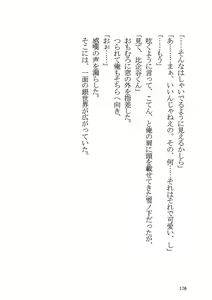 「……そんなはしゃいでるように見えるかしら」
「あー……ぁぁ、いいんじゃねえの、その、何……それはそれで可愛い、し」
「……もう」
呟くように言って、こてん、と俺の肩に頭を載せてきた雪ノ下だったが、
おもむろに窓の外を指差した。
「見て、比企谷くん」
つられて俺もそちらへ向き、
「おお……」
感嘆の声を漏らした。
そこには、一面の銀世界が広がっていた。
176